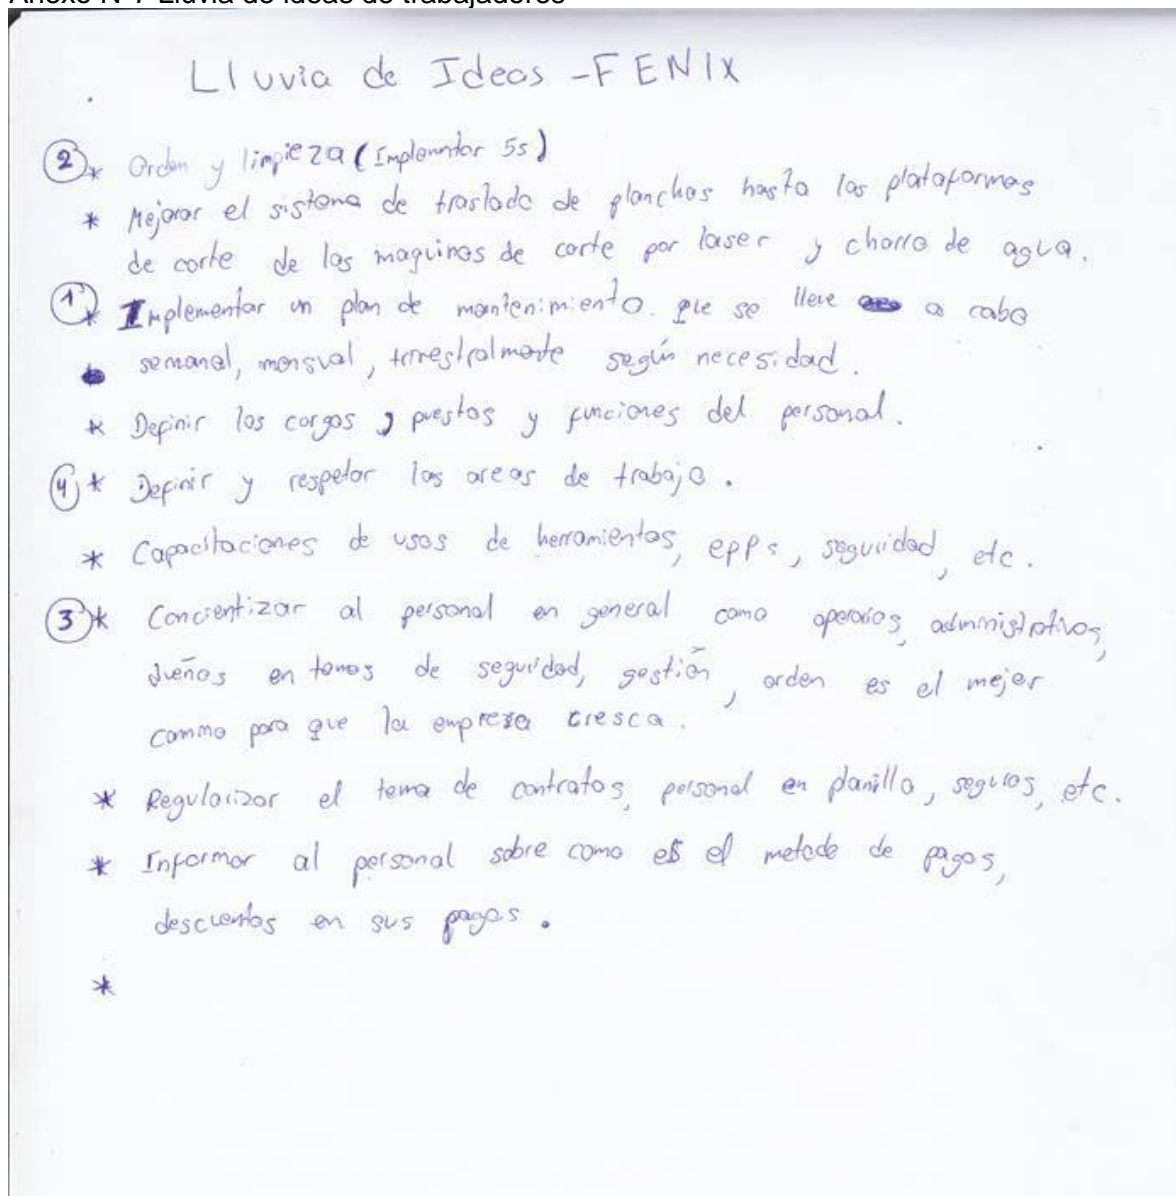 Anexo N°7 Lluvia de ideas de trabajadores
Lluvia de Ideas - FENIX
② * Orden y limpieza (Implemntar 5s)
* Mejorar el sistema de traslado de planchas hasta las plataformas
de corte de las maquinas de corte por laser y chorro de agua.
① * Implementar un plan de mantenimiento. que se lleve a cabo
semanal, mensual, trimestralmente según necesidad.
* Definir los cargos, puestos y funciones del personal.
④ * Definir y respetar las areas de trabajo.
* Capacitaciones de usos de herramientas, epps, seguridad, etc.
③ * Concientizar al personal en general como operarios, administrativos,
dueños en temas de seguridad, gestión, orden es el mejor
camino para que la empresa cresca.
* Regularizar el tema de contratos, personal en planilla, seguros, etc.
* Informar al personal sobre como es el metodo de pagos,
descuentos en sus pagos.
*